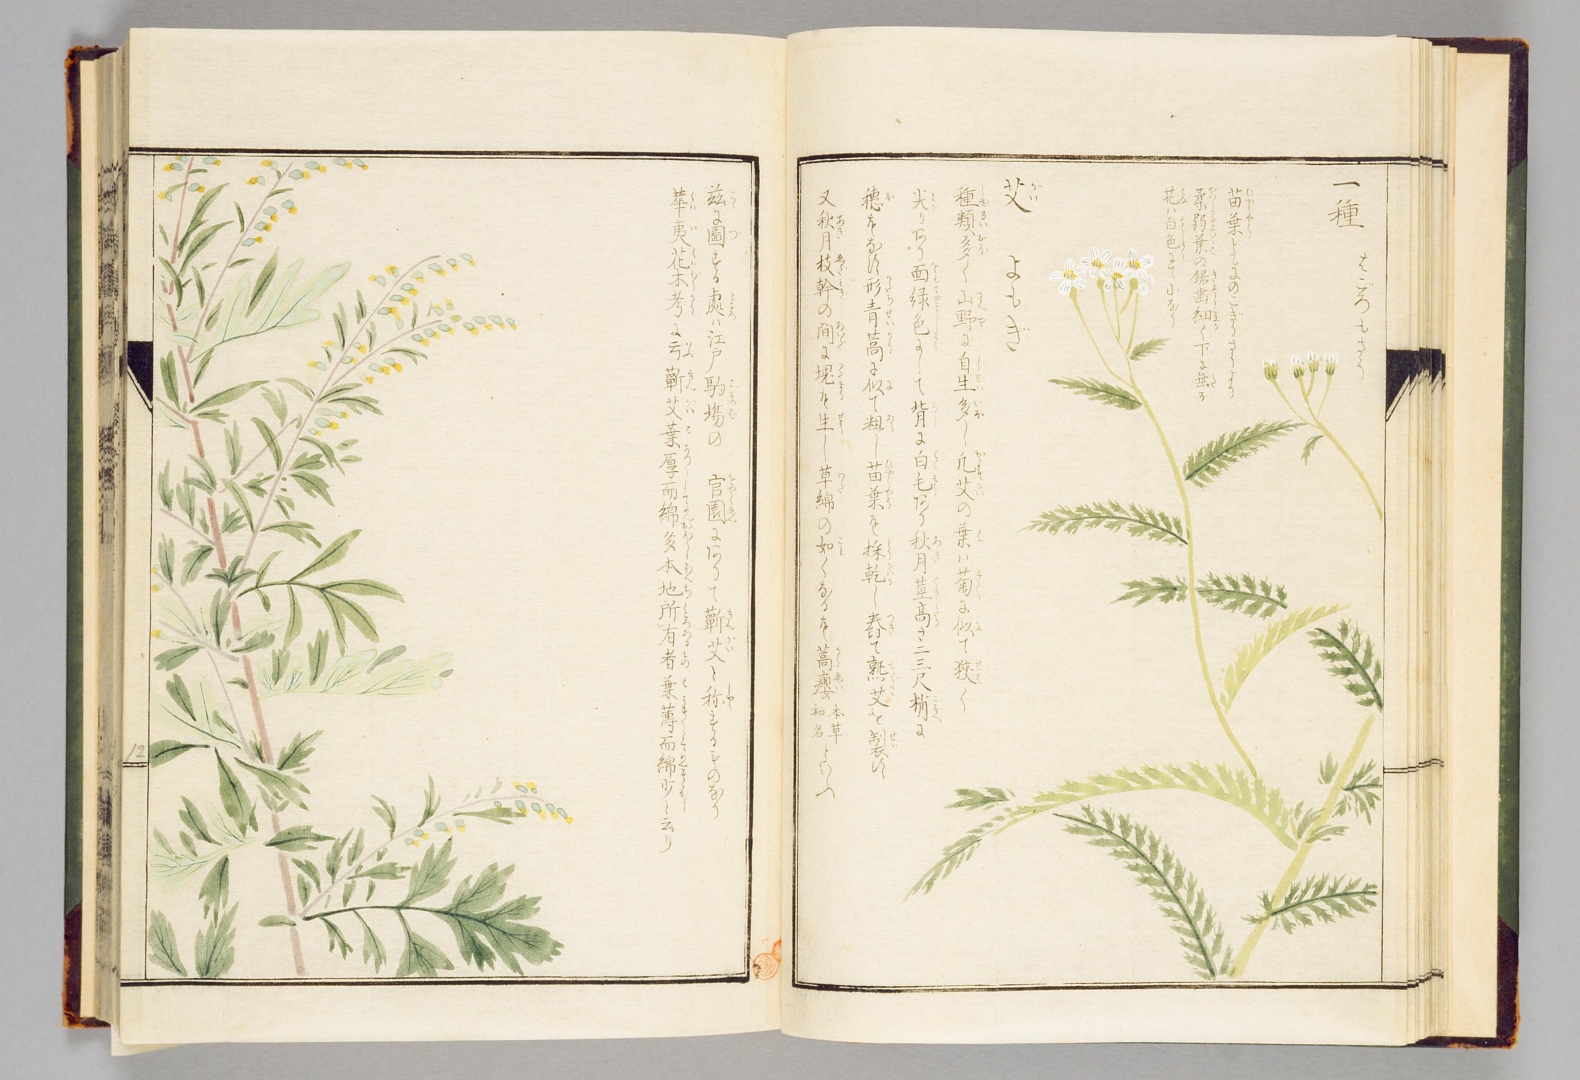 一種 はごろもさう
苗葉ともにのこぎりさうより
柔弱葉の鋸歯細く下に垂る
花ハ白色にて小なり
艾 よもぎ
種類多く山野に自生多し凡艾の葉ハ菊に似て狭く
尖りあり面緑色にして背に白毛あり秋月莖高さ二三尺梢に
穂をなす形青蒿に似て粗し苗葉を採乾し舂て熟艾を製す
又秋月枝幹の間に塊を生し草綿の如くなるを蒿癭 本草和名 といふ
茲に圖する處ハ江戸駒場の 官園にありて蘄艾と称するものなり
華夷花木考に云蘄艾葉厚而綿多本地所有者葉薄而綿少と云り
12